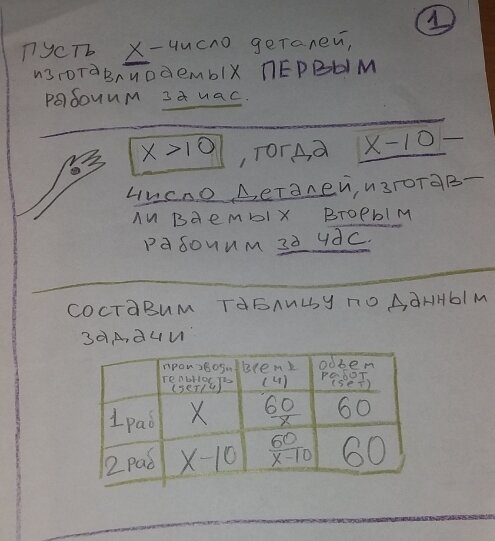 1
ПУСТЬ X – число деталей,
изготавливаемых ПЕРВЫМ
рабочим за час.
X > 10 , тогда X – 10 –
число деталей, изготав-
ливаемых вторым
рабочим за час.
составим таблицу по данным
задачи
производи тельность (дет/ч) время (ч) объем работ (дет)
1 раб X 60/x 60
2 раб X–10 60/x–10 60